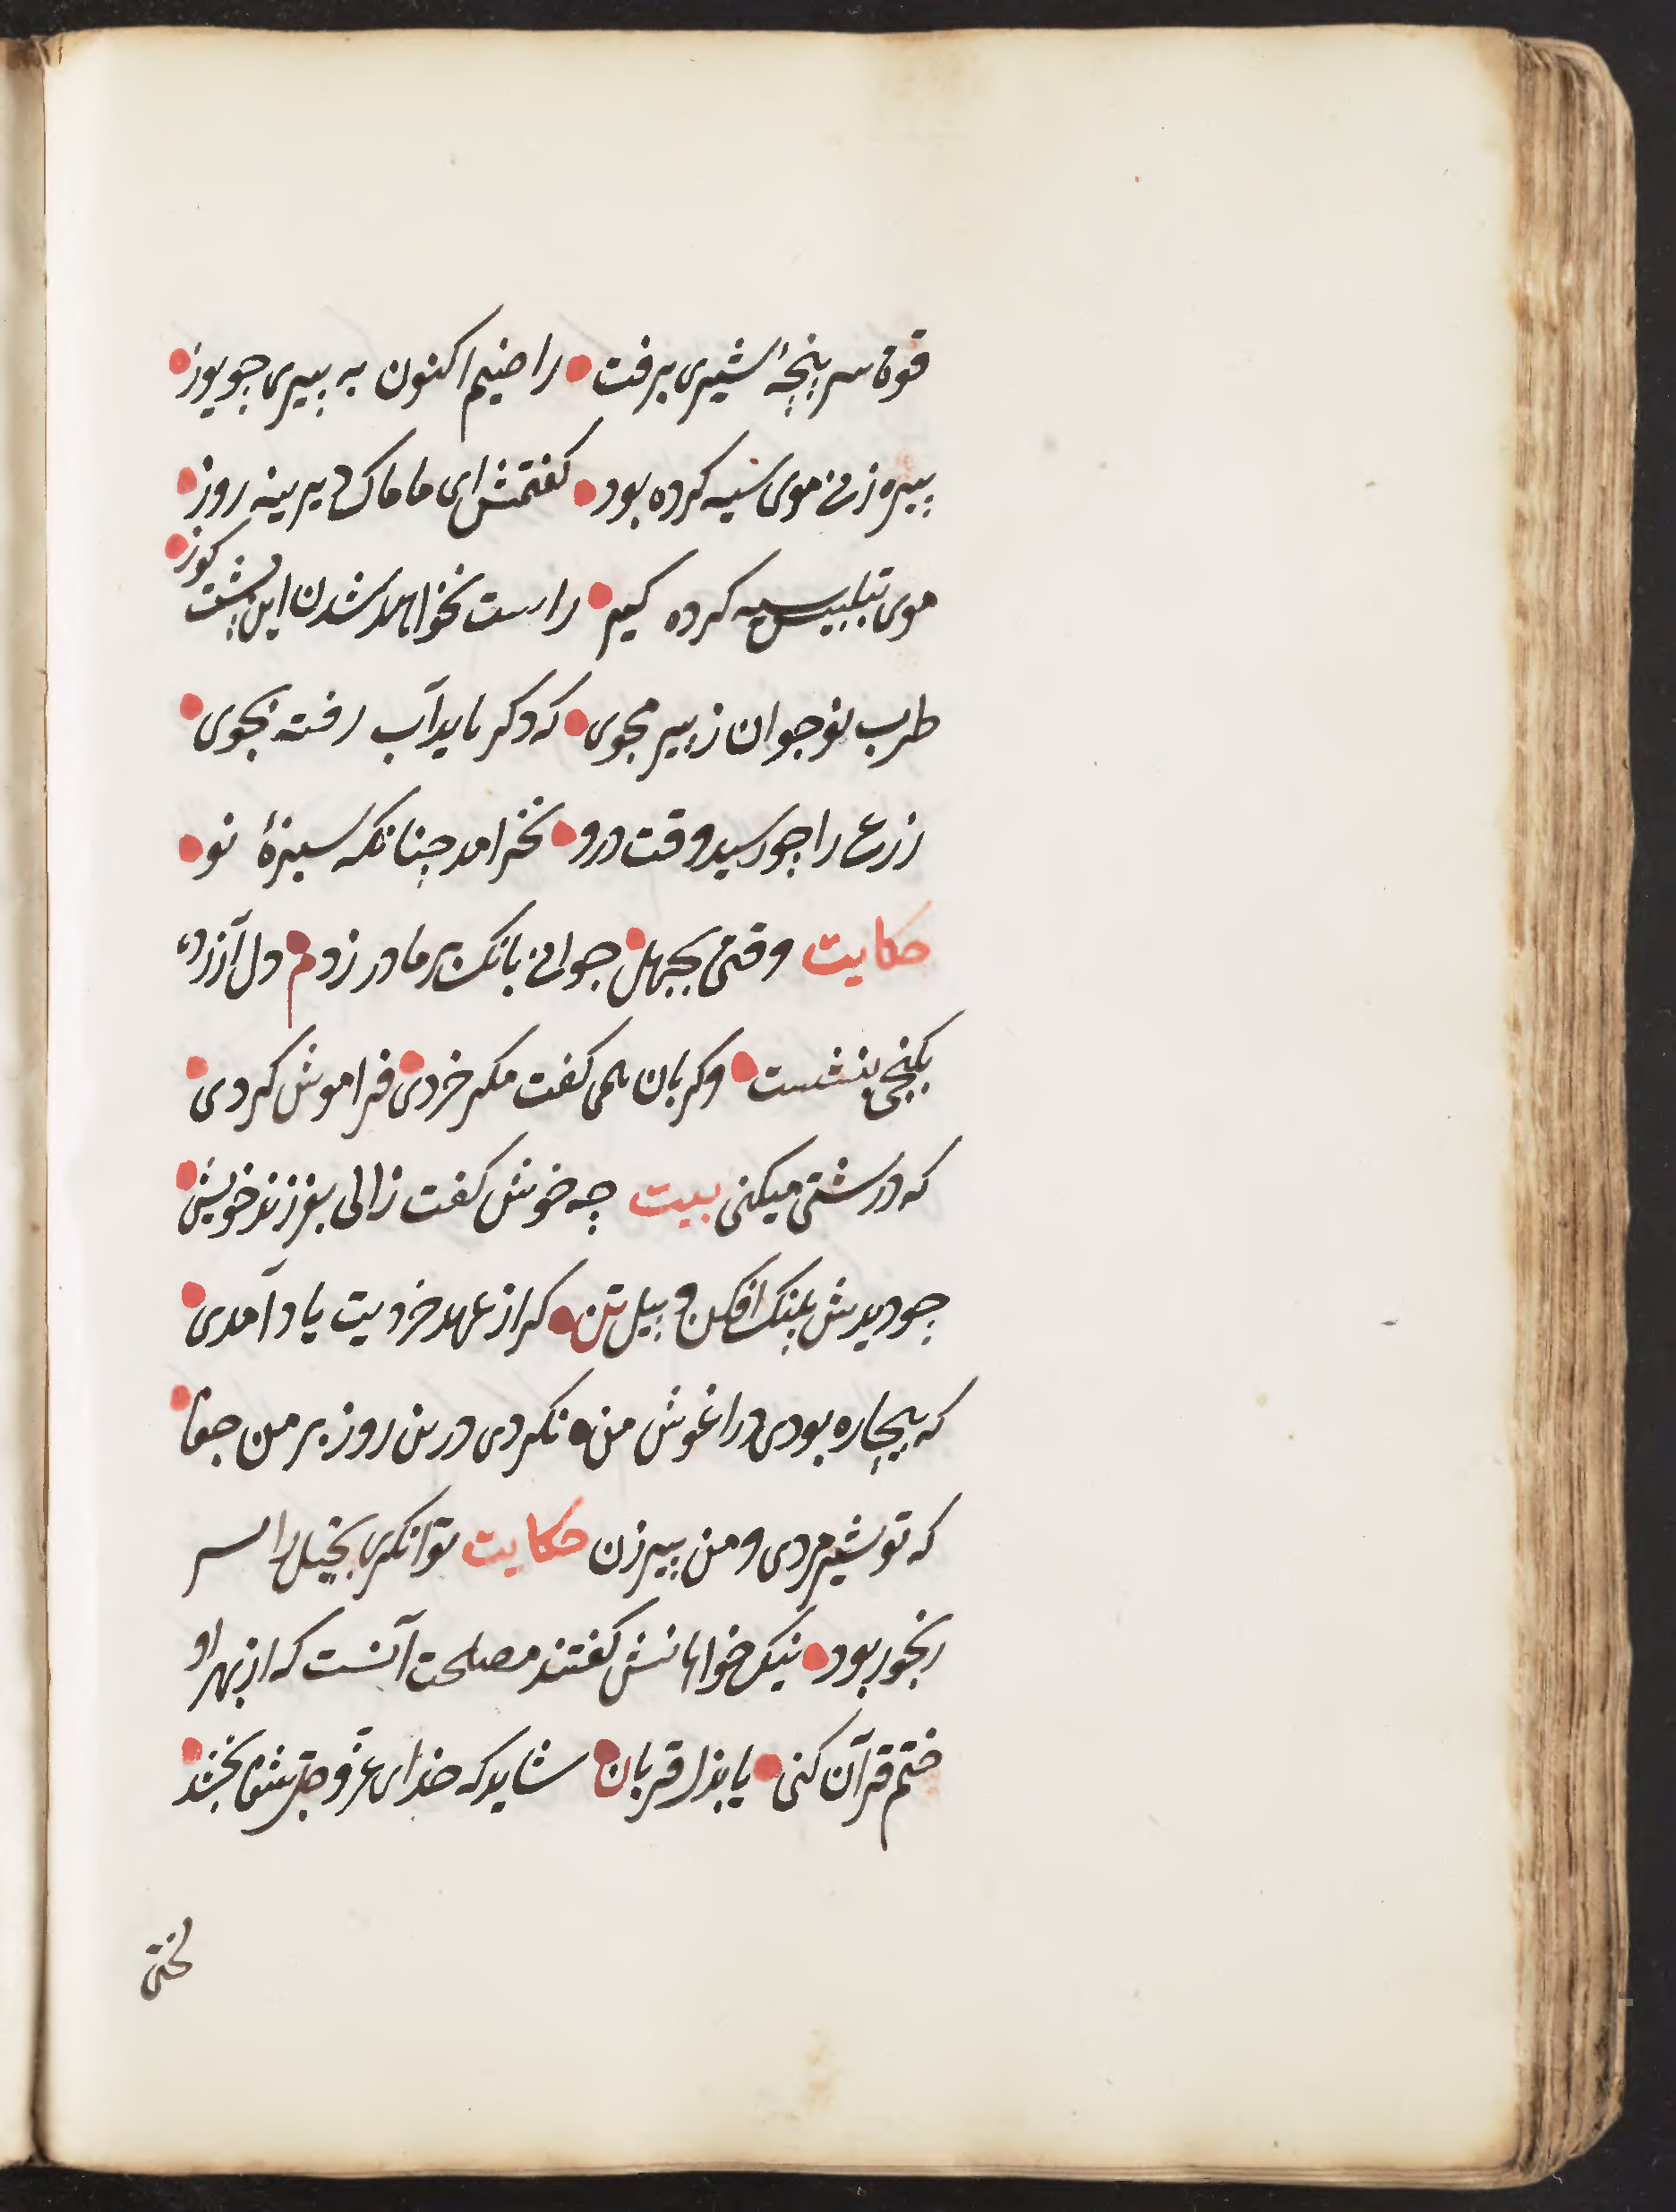 قوة سرپنجهٔ شیری برفت راضیم اکنون به پیری چو یوز
پیره زنی موی سیه کرده بود کفتمش ای مامک دیرینه روز
موی بتلبیس سیه کرده کیر راست نخواهد شدن این پشت کوز
طرب نوجوان ز پیر مجوی که دکر ناید آب رفته بجوی
زرع را چو رسید وقت درو نخرامد چنانکه سبزهٔ نو
حکایت وقتی بجهل جوانی بانک بر مادر زدم دل آزرده
بکنجی بنشست وکریان همی کفت مکر خردی فراموش کردی
که درشتی میکنی بیت چه خوش کفت زالی بفرزند خویش
چو دیدش پلنک افکن و پیل تن کر از عهد خردیت یاد آمدی
که بیچاره بودی در اغوش من نکردی درین روز بر من جفا
که تو شیر مردی و من پیر زن حکایت توانکری بخیل را پسر
رنجور بود نیک خواهانش کفتند مصلحت آنست که از بهر او
ختم قرآن کنی یا بذل قربان شاید که خدای عز و جل شفا بخشد
لختی